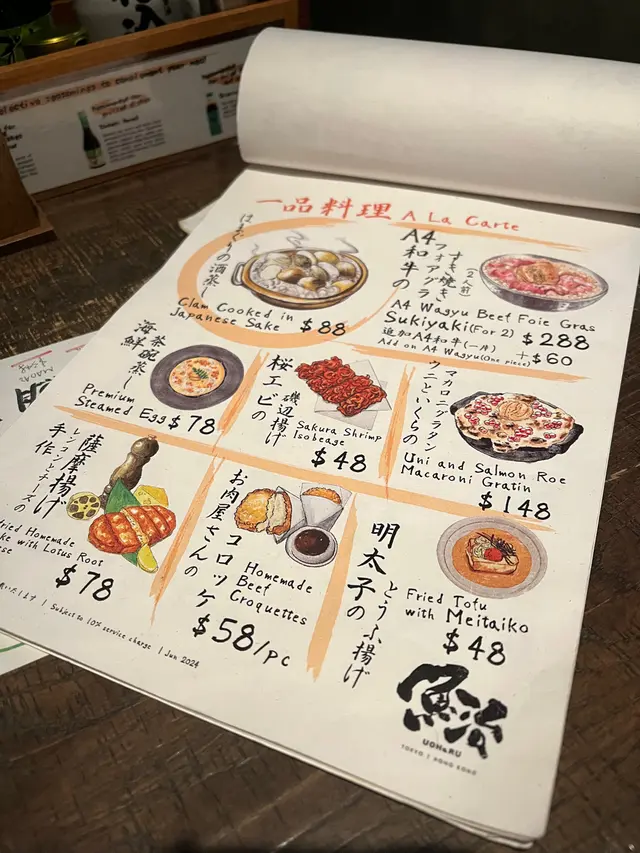 一品料理 A La Carte
はまぐりの酒蒸し
Clam Cooked in
Japanese Sake $88
A4和牛の
フォアグラ
すき焼き
(2人前)
A4 Wagyu Beef Foie Gras
Sukiyaki (For 2) $288
追加A4和牛(一片)
Add on A4 Wagyu (One piece) +$60
海鮮茶碗蒸し
Premium
Steamed Egg $78
桜エビの
磯辺揚げ
Sakura Shrimp
Isobeage
$48
ウニといくらの
マカロニグラタン
Uni and Salmon Roe
Macaroni Gratin
$148
薩摩揚げ
レンコンとチーズの
手作
Fried Homemade
ke with Lotus Root
ese
$78
お肉屋さんの
コロッケ
Homemade
Beef
Croquettes
$58/pc
明太子の
とうふ揚げ
Fried Tofu
with Meitaiko
$48
いただきます | Subject to 10% service charge | Jun 2024
魚治
UOHARU
TOKYO | HONG KONG